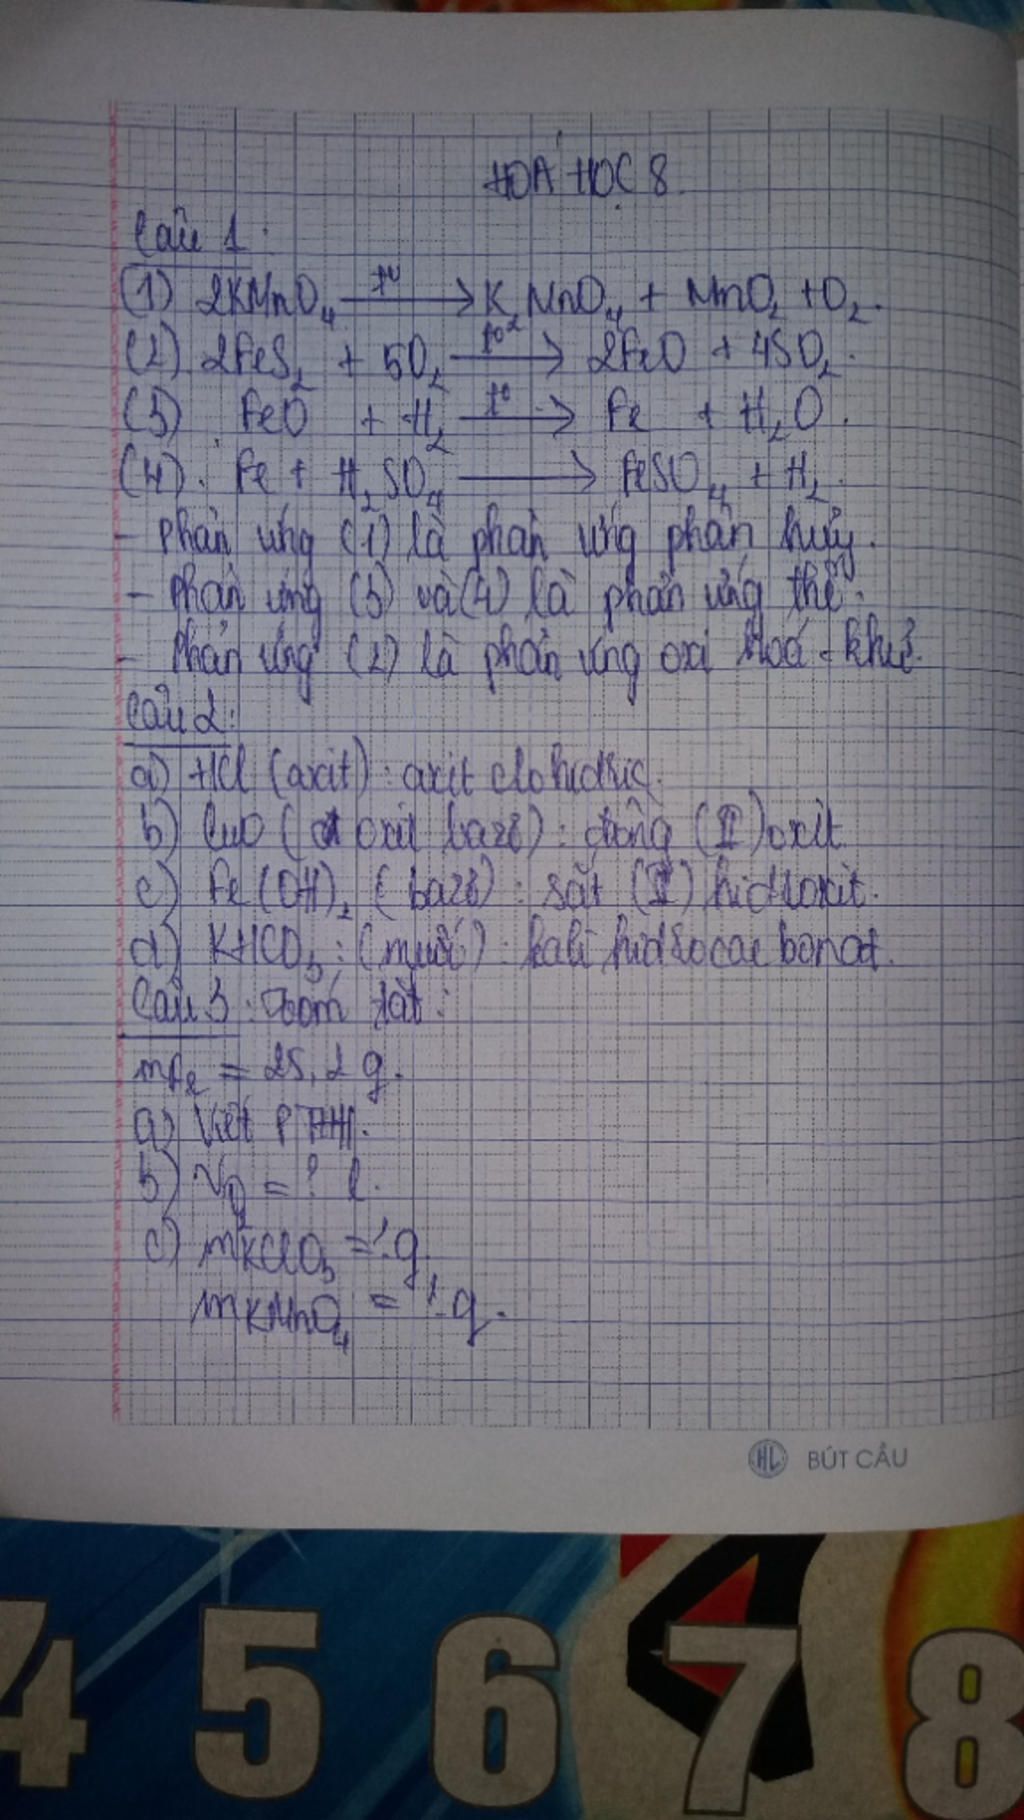 HOÁ HỌC 8.
Câu 1:
(1) 2KMnO4 t° → K2MnO4 + MnO2 + O2.
(2) 2FeS2 + 5O2 t° → 2FeO + 4SO2.
(3) FeO + H2 t° → Fe + H2O.
(4). Fe + H2SO4 → FeSO4 + H2.
- Phản ứng (1) là phản ứng phân hủy.
- Phản ứng (3) và (4) là phản ứng thế.
- Phản ứng (2) là phản ứng oxi hoá - khử.
Câu 2:
a) HCl (axit): axit clohidric.
b) CuO (oxit bazơ): đồng (II) oxit
c) Fe(OH)2 (bazơ): sắt (II) hidroxit.
d) KHCO3: (muối): kali hidrocacbonat.
Câu 3: Toóm tắt:
mFe = 25,2 g.
a) Viết PTHH.
b) V = ? l.
c) mKClO3 = ? g.
mKMnO4 = ? g.
HL BÚT CẦU
4 5 6 7 8